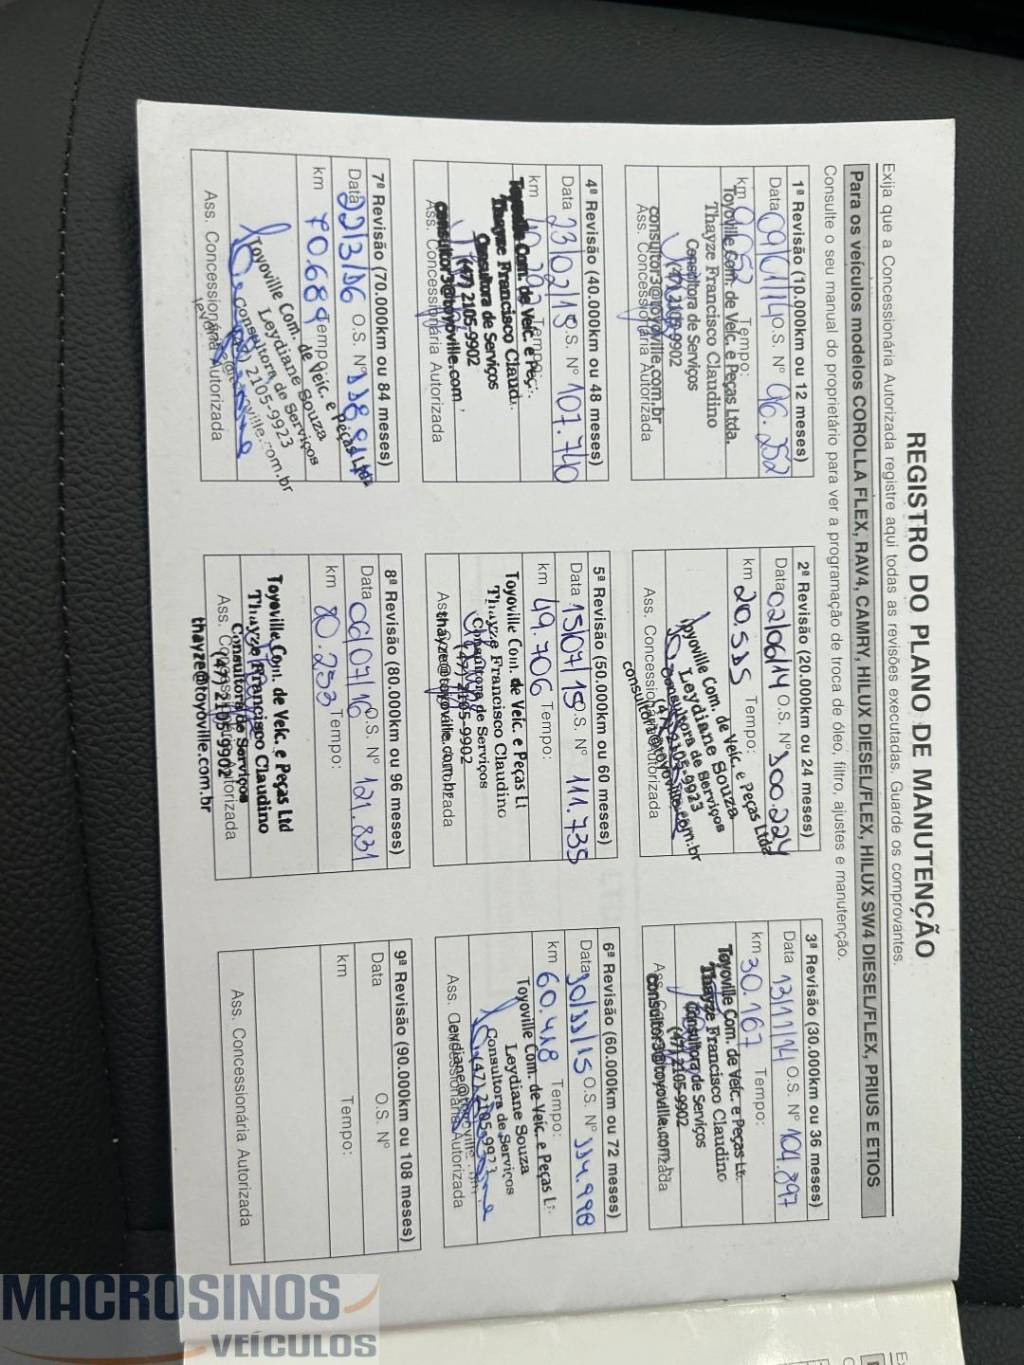 REGISTRO DO PLANO DE MANUTENÇÃO
Exija que a Concessionária Autorizada registre aqui todas as revisões executadas. Guarde os comprovantes.
Para os veículos modelos COROLLA FLEX, RAV4, CAMRY, HILUX DIESEL/FLEX, HILUX SW4 DIESEL/FLEX, PRIUS E ETIOS
Consulte o seu manual do proprietário para ver a programação de troca de óleo, filtro, ajustes e manutenção.
1ª Revisão (10.000km ou 12 meses)
Data 09/01/14 O.S. Nº 96.252
km Tempo:
Toyoville Com. de Veíc. e Peças Ltda.
Thayze Francisco Claudino
Consultora de Serviços
(47) 2105-9902
Ass. Concessionária Autorizada
consultor3@toyoville.com.br
2ª Revisão (20.000km ou 24 meses)
Data 02/06/14 O.S. Nº 100.224
km 20.515 Tempo:
Toyoville Com. de Veíc. e Peças Ltda
Leydiane Souza
Consultora de Serviços
(47) 2105-9923
Ass. Concessionária Autorizada
consultor1@toyoville.com.br
3ª Revisão (30.000km ou 36 meses)
Data 13/11/14 O.S. Nº 104.897
km 30.167 Tempo:
Toyoville Com. de Veíc. e Peças Lt.
Thayze Francisco Claudino
Consultora de Serviços
(47) 2105-9902
Ass.
consultor3@toyoville.com
4ª Revisão (40.000km ou 48 meses)
Data 23/02/15 O.S. Nº 107.740
km Tempo:
Toyoville Com. de Veíc. e Peç.
Thayze Francisco Claudi
Consultora de Serviços
(47) 2105-9902
Ass. Concessionária Autorizada
consultor3@toyoville.com
5ª Revisão (50.000km ou 60 meses)
Data 15/07/15 O.S. Nº 111.735
km 49.706 Tempo:
Toyoville Com. de Veíc. e Peças Lt
Thayze Francisco Claudino
Consultora de Serviços
(47) 2105-9902
thayze@toyoville.com.br
6ª Revisão (60.000km ou 72 meses)
Data 30/11/15 O.S. Nº 114.998
km 60.418 Tempo:
Toyoville Com. de Veíc. e Peças L
Leydiane Souza
Consultora de Serviços
(47) 2105-9923
Ass. Concessionária Autorizada
7ª Revisão (70.000km ou 84 meses)
Data 22/3/16 O.S. Nº
km 70.689 Tempo:
Toyoville Com. de Veíc. e Peças Ltd
Leydiane Souza
Consultora de Serviços
2105-9923
Ass. Concessionária Autorizada
8ª Revisão (80.000km ou 96 meses)
Data 06/07/16 O.S. Nº 121.831
km 80.253 Tempo:
Toyoville Com. de Veíc. e Peças Ltd
Thayze Francisco Claudino
Consultora de Serviços
Ass. Concessionária Autorizada
(47) 2105-9902
thayze@toyoville.com.br
9ª Revisão (90.000km ou 108 meses)
Data O.S. Nº
km Tempo:
Ass. Concessionária Autorizada
MACROSINOS
VEÍCULOS